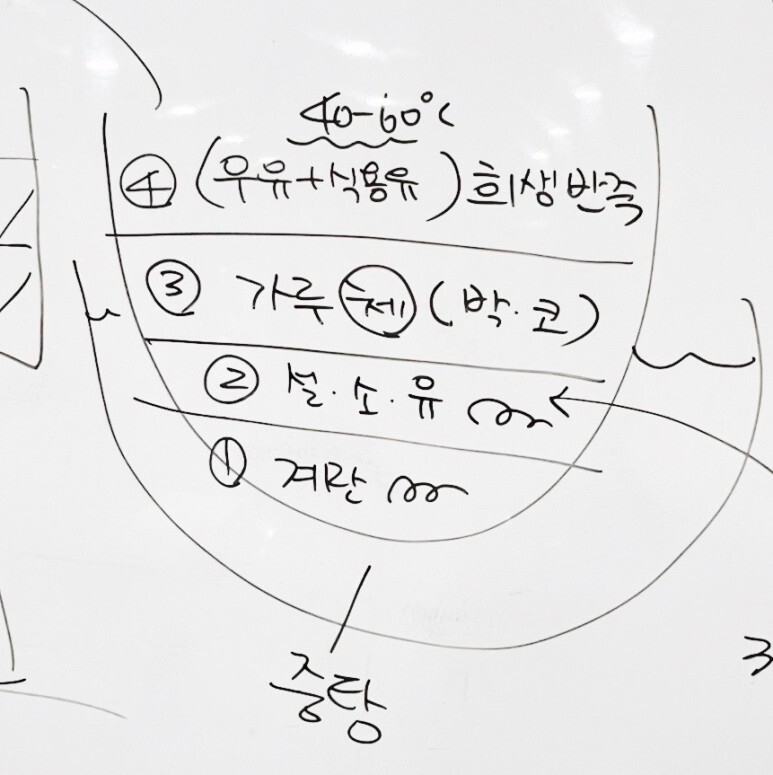 40-60°C
④ (우유+식용유) 희생반죽
③ 가루 체 (박·코)
② 설·소·유
① 계란
중탕
3